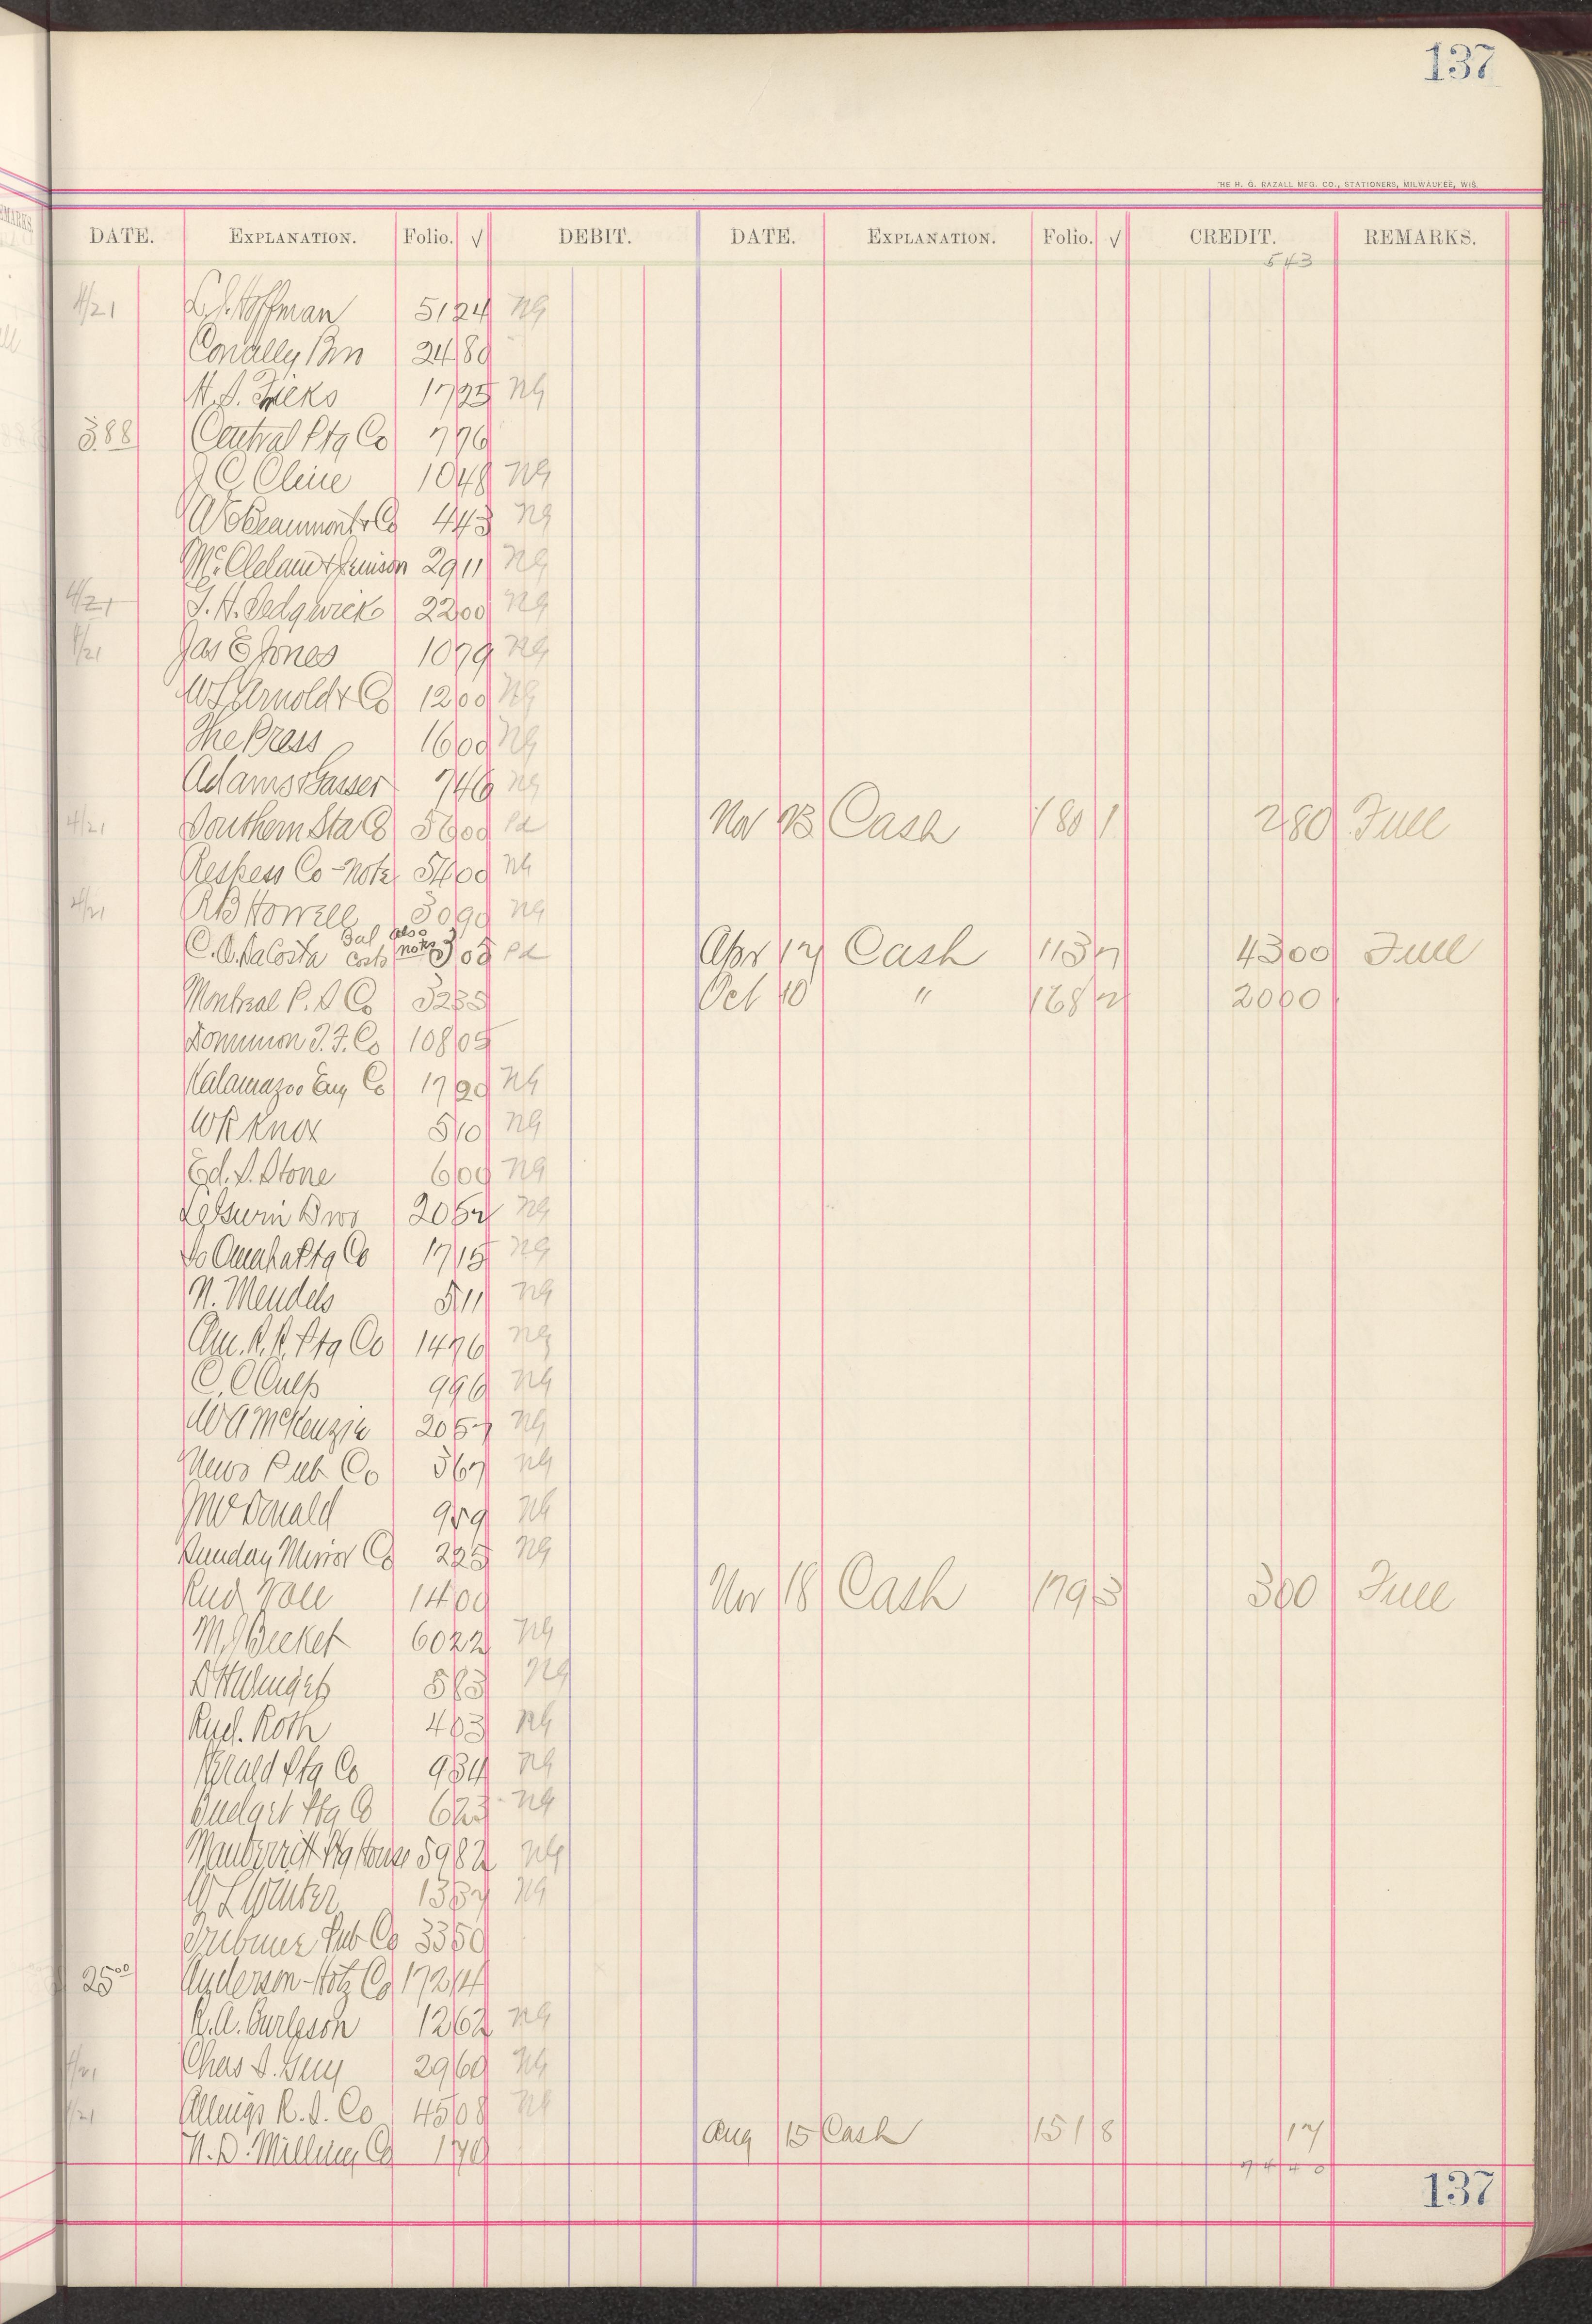 137
THE H. G. RAZALL MFG. CO., STATIONERS, MILWAUKEE, WIS.
DATE. EXPLANATION. Folio. √ DEBIT. DATE. EXPLANATION. Folio. √ CREDIT. REMARKS.
543
4/21 Hoffman 5124 NG
Conally Bro 2480
H.S. 1725 NG
3.88 Central Ptg Co 776
J C Cline 1048 NG
W Beaumont & Co 443 NG
McCleland & 2911 NG
4/21 J. H. Sedgwick 2200 NG
4/21 Jas E Jones 1079 NG
W S Arnold & Co 1200 NG
The Press 1600 NG
Adams & Gasser 746 NG
4/21 Southern Sta Co 5600 Pd Nov 23 Cash 1801 280 Full
Respess Co - Note 5400 NG
4/21 R B Howell 3090 NG
C. D. DaCosta Bal costs also note 305 Pd Apr 17 Cash 1137 4300 Full
Montreal P. S Co 3235 Oct 10 " 1687 2000
Dominion T. F. Co 10805
Kalamazoo Eng Co 1790 NG
W R Knox 510 NG
Ed. S. Stone 600 NG
Bros 2057 NG
So Omaha Ptg Co 1715 NG
N. Mendels 511 NG
Am. R. R. Ptg Co 1476 NG
C. C Culp 996 NG
W A McKenzie 2057 NG
News Pub Co 367 NG
McDonald 959 NG
Sunday Mirror Co 225 NG
Rud Voll 1400 Nov 18 Cash 1793 300 Full
M J Becket 6022 NG
583 NG
Rud. Roth 403 NG
Herald Ptg Co 934 NG
Budget Ptg Co 623 NG
Ptg House 5982 NG
W L Winter 1387 NG
Tribune Pub Co 3350
25⁰⁰ Anderson-Hotz Co 17214
R. A. Burleson 1262 NG
4/21 Chas S. Guy 2960 NG
4/21 Allings R. S. Co 4508 NG
N. D. Milling Co 170 Aug 15 Cash 1518 17
7440
137